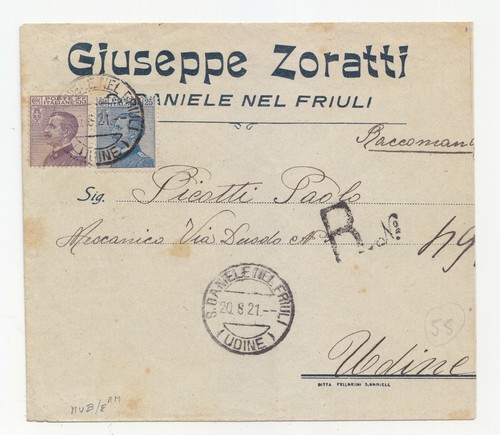 Giuseppe Zoratti
DANIELE NEL FRIULI
POSTE ITALIANE
S. DANIELE NEL FRIULI
8.21.
(UDINE)
Raccoman
Sig. Picotti Paolo
Meccanico Via Duodo N
R. No.
49
S. DANIELE NEL FRIULI
20.8.21.--
(UDINE)
58
Udine
DITTA PELLARINI S. DANIELE